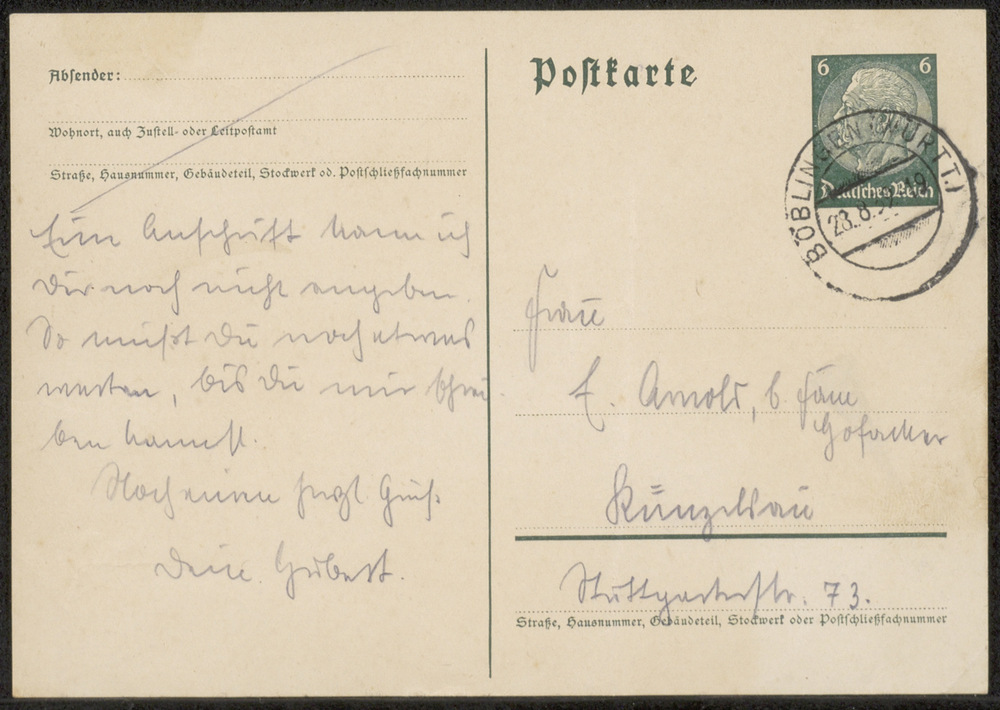 Absender:
Wohnort, auch Zustell- oder Leitpostamt
Straße, Hausnummer, Gebäudeteil, Stockwerk od. Postschließfachnummer
Eine Anschrift kann ich
Dir noch nicht angeben.
So mußt Du noch etwas
warten, bis Du mir schrei
ben kannst.
Noch einen herzl. Gruß.
Dein
Postkarte
6 6
Deutsches Reich
BÖBLINGEN (WÜRTT.)
28.8.
Frau
E. Arnold, b. Fam
Hofacker
Künzelsau
Stuttgarterstr. 73.
Straße, Hausnummer, Gebäudeteil, Stockwerk oder Postschließfachnummer